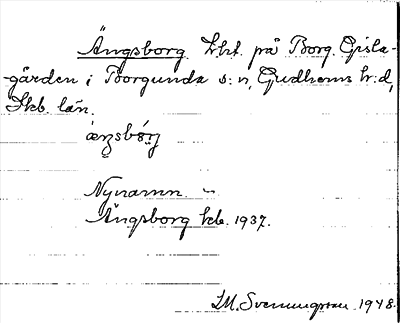 Ängsborg. Lht. på Borg. Gisla-
gården i Borgunda s:n, Gudhems hr:d,
Skb. län.
Nynamn.
Ängsborg kb. 1937.
I.M. Svenungsson. 1948.